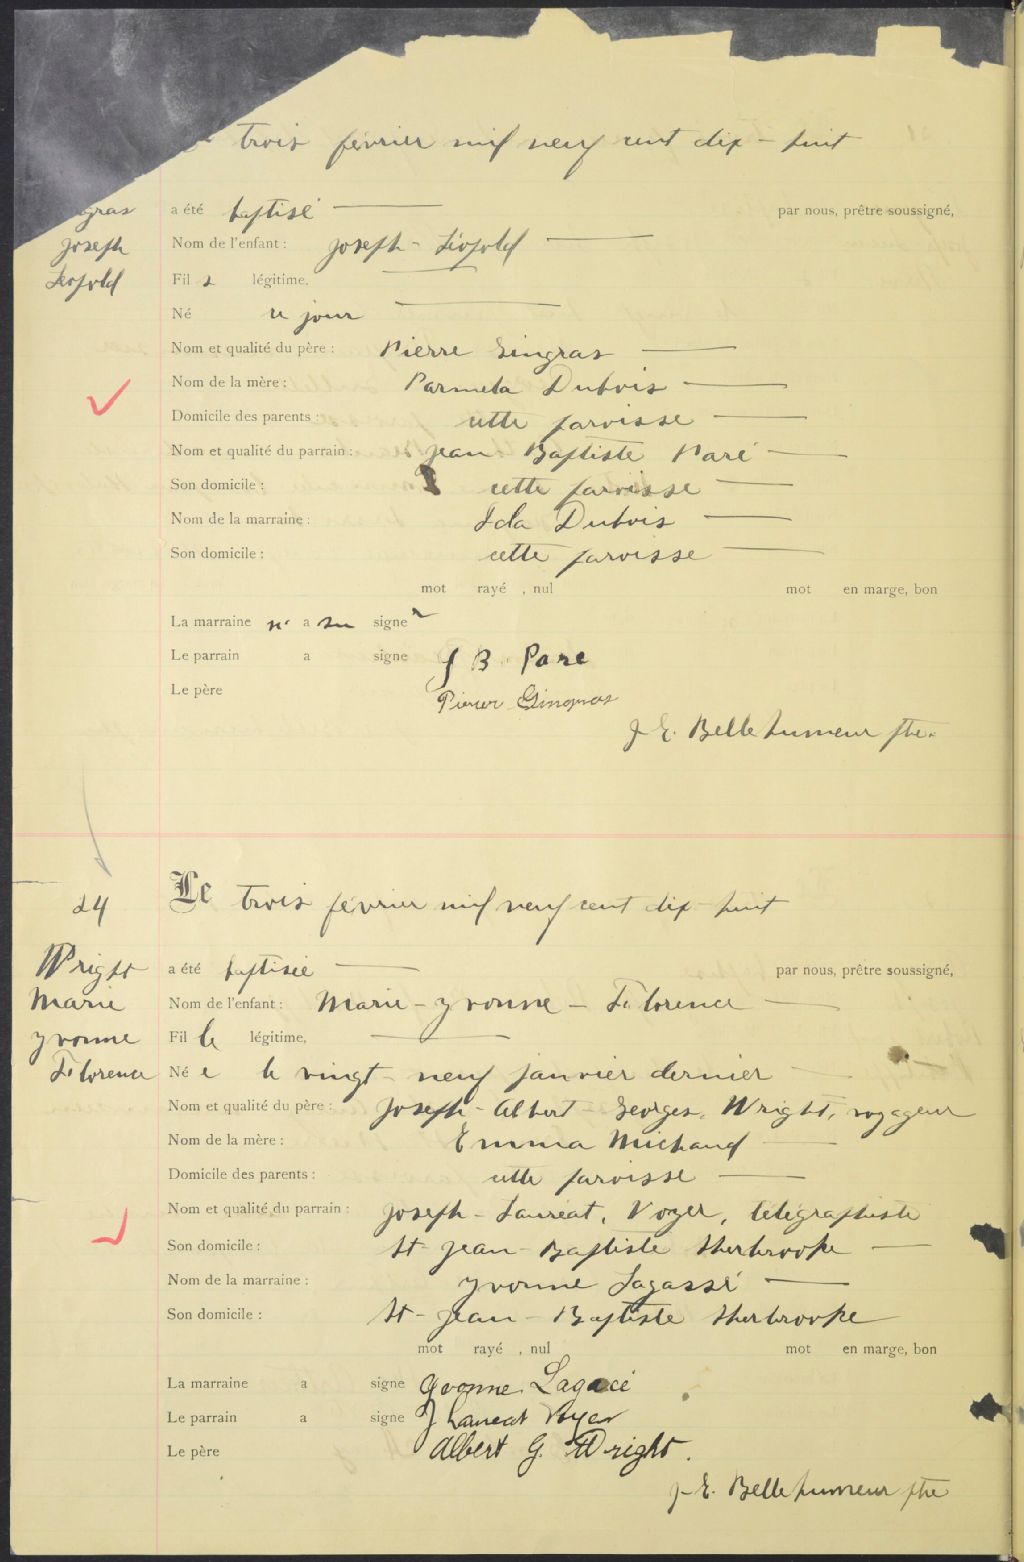 trois février mil neuf cent dix-huit
gras a été baptisé par nous, prêtre soussigné,
Joseph Nom de l'enfant : Joseph-Léopold
Léopold Fil s légitime,
Né ce jour
Nom et qualité du père : Pierre Gingras
Nom de la mère : Parmela Dubois
Domicile des parents : cette paroisse
Nom et qualité du parrain : Jean Baptiste Paré
Son domicile : cette paroisse
Nom de la marraine : Ida Dubois
Son domicile : cette paroisse
mot rayé , nul mot en marge, bon
La marraine n' a su signer
Le parrain a signe J B Paré
Le père Pierre Gingras
J-E. Bellehumeur ptre.
24 Le trois février mil neuf cent dix-huit
Wright a été baptisée par nous, prêtre soussigné,
Marie Nom de l'enfant : Marie-Yvonne-Florence
Yvonne Fil le légitime,
Florence Né e le vingt-neuf janvier dernier
Nom et qualité du père : Joseph-Albert-Georges, Wright, voyageur
Nom de la mère : Emma Michaud
Domicile des parents : cette paroisse
Nom et qualité du parrain : Joseph-Lauréat, Voyer, télégraphiste
Son domicile : St-Jean-Baptiste Sherbrooke
Nom de la marraine : Yvonne Lagassé
Son domicile : St-Jean-Baptiste Sherbrooke
mot rayé , nul mot en marge, bon
La marraine a signe Yvonne Lagacé
Le parrain a signe J Laureat Voyer
Le père Albert G. Wright.
J-E. Bellehumeur ptre